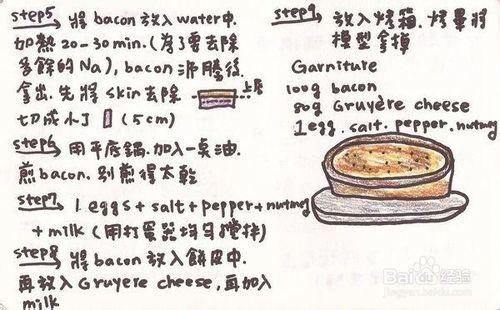 step5 將 bacon 放入 water中.
加熱 20-30 min. (為了要去除
多餘的 Na), bacon 沸騰後
拿出. 先將 skin 去除 上層
切成小丁 (5cm)
step6 用平底鍋. 加入一臭油.
煎 bacon. 別煎得太乾
step7 1 eggs + salt + pepper + nutmeg
+ milk (用打蛋器均勻攪拌)
step8 將 bacon 放入餅皮中.
再放入 Gruyère cheese, 再加入
milk
step9 放入烤箱. 烤畢將
模型拿掉
Garniture
100g bacon
80g Gruyère cheese
1 egg. salt. pepper. nutmeg
Baidu 经验
jingyan.baidu.com